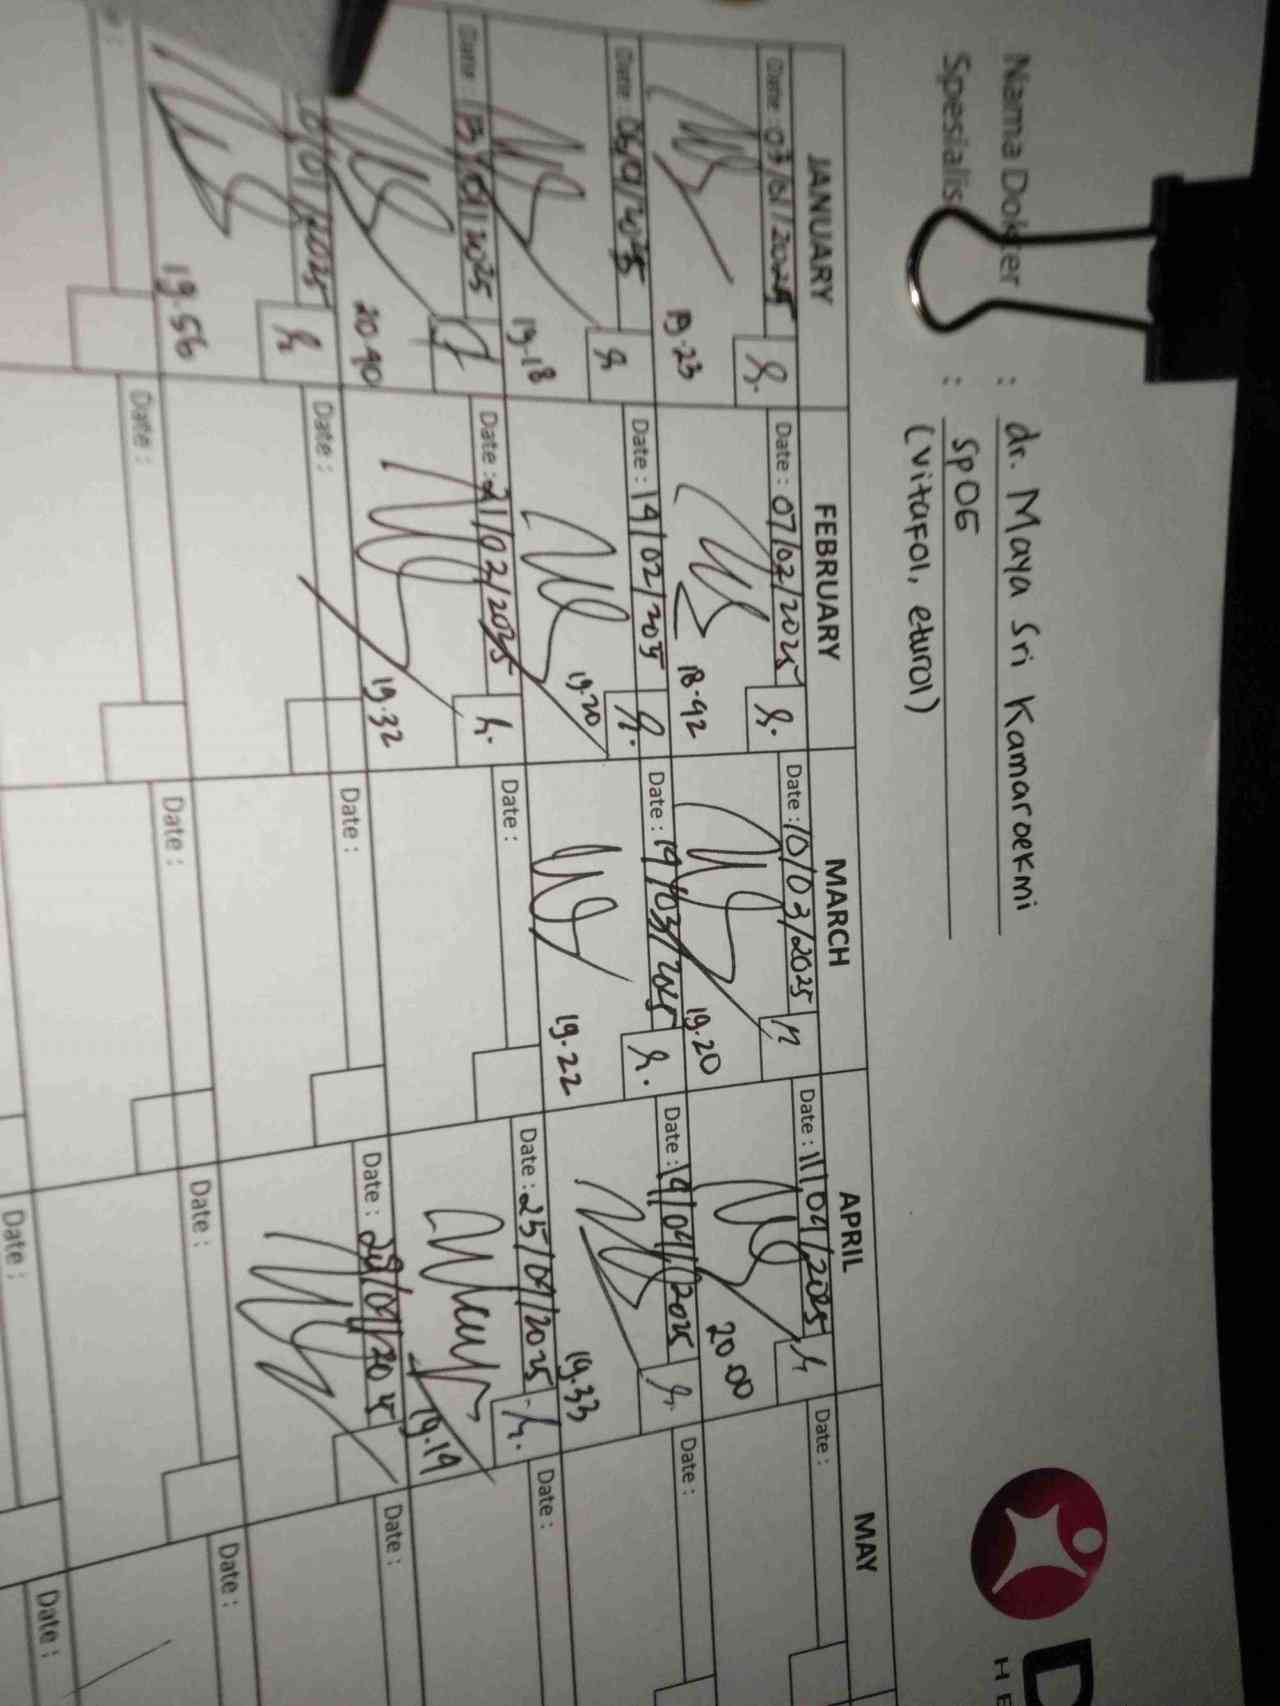 Nama Dokter : dr. Maya Sri Kamaroekmi
Spesialis : SpOG
(Vitafol, eturol)
D
HE
JANUARY FEBRUARY MARCH APRIL MAY
Date : 03/01/2025 Date : 07/02/2025 Date : 10/03/2025 Date : 11/04/2025 Date :
19.23 18.42 19.20 20.00
Date : 06/01/2025 Date : 14/02/2025 Date : 14/03/2025 Date : 14/04/2025 Date :
19.18 19.20 19.22 19.33
Date : 13/01/2025 Date : 21/02/2025 Date : Date : 25/04/2025 Date :
20.40 19.32 19.19
/01/2025 Date : Date : Date : 28/04/2025 Date :
19.56
Date : Date : Date : Date :
Date : Date :